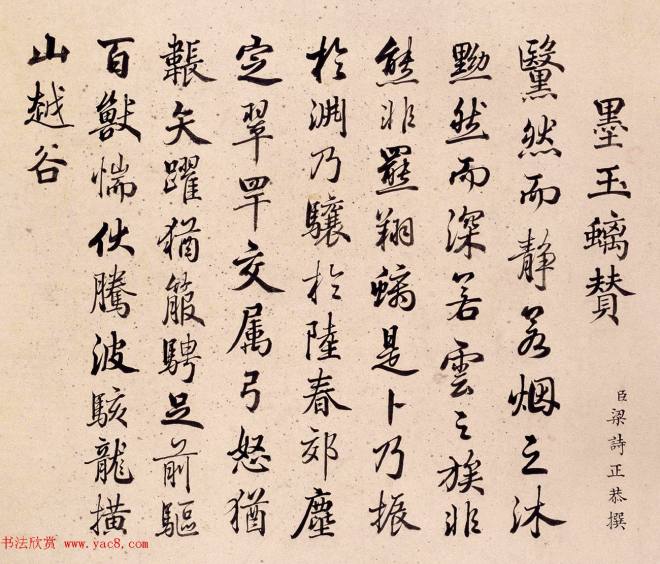 墨玉螭赞
臣梁詩正恭撰
黳然而静若烟之沐
黝然而深若雲之族非
熊非羆翔螭是卜乃振
於淵乃驤於陸春郊塵
定翠罕交属弓怒猶
韔矢躍猶箙騁足前驅
百獸惴伏騰波駭龍擴
山越谷
书法欣赏 www.yac8.com